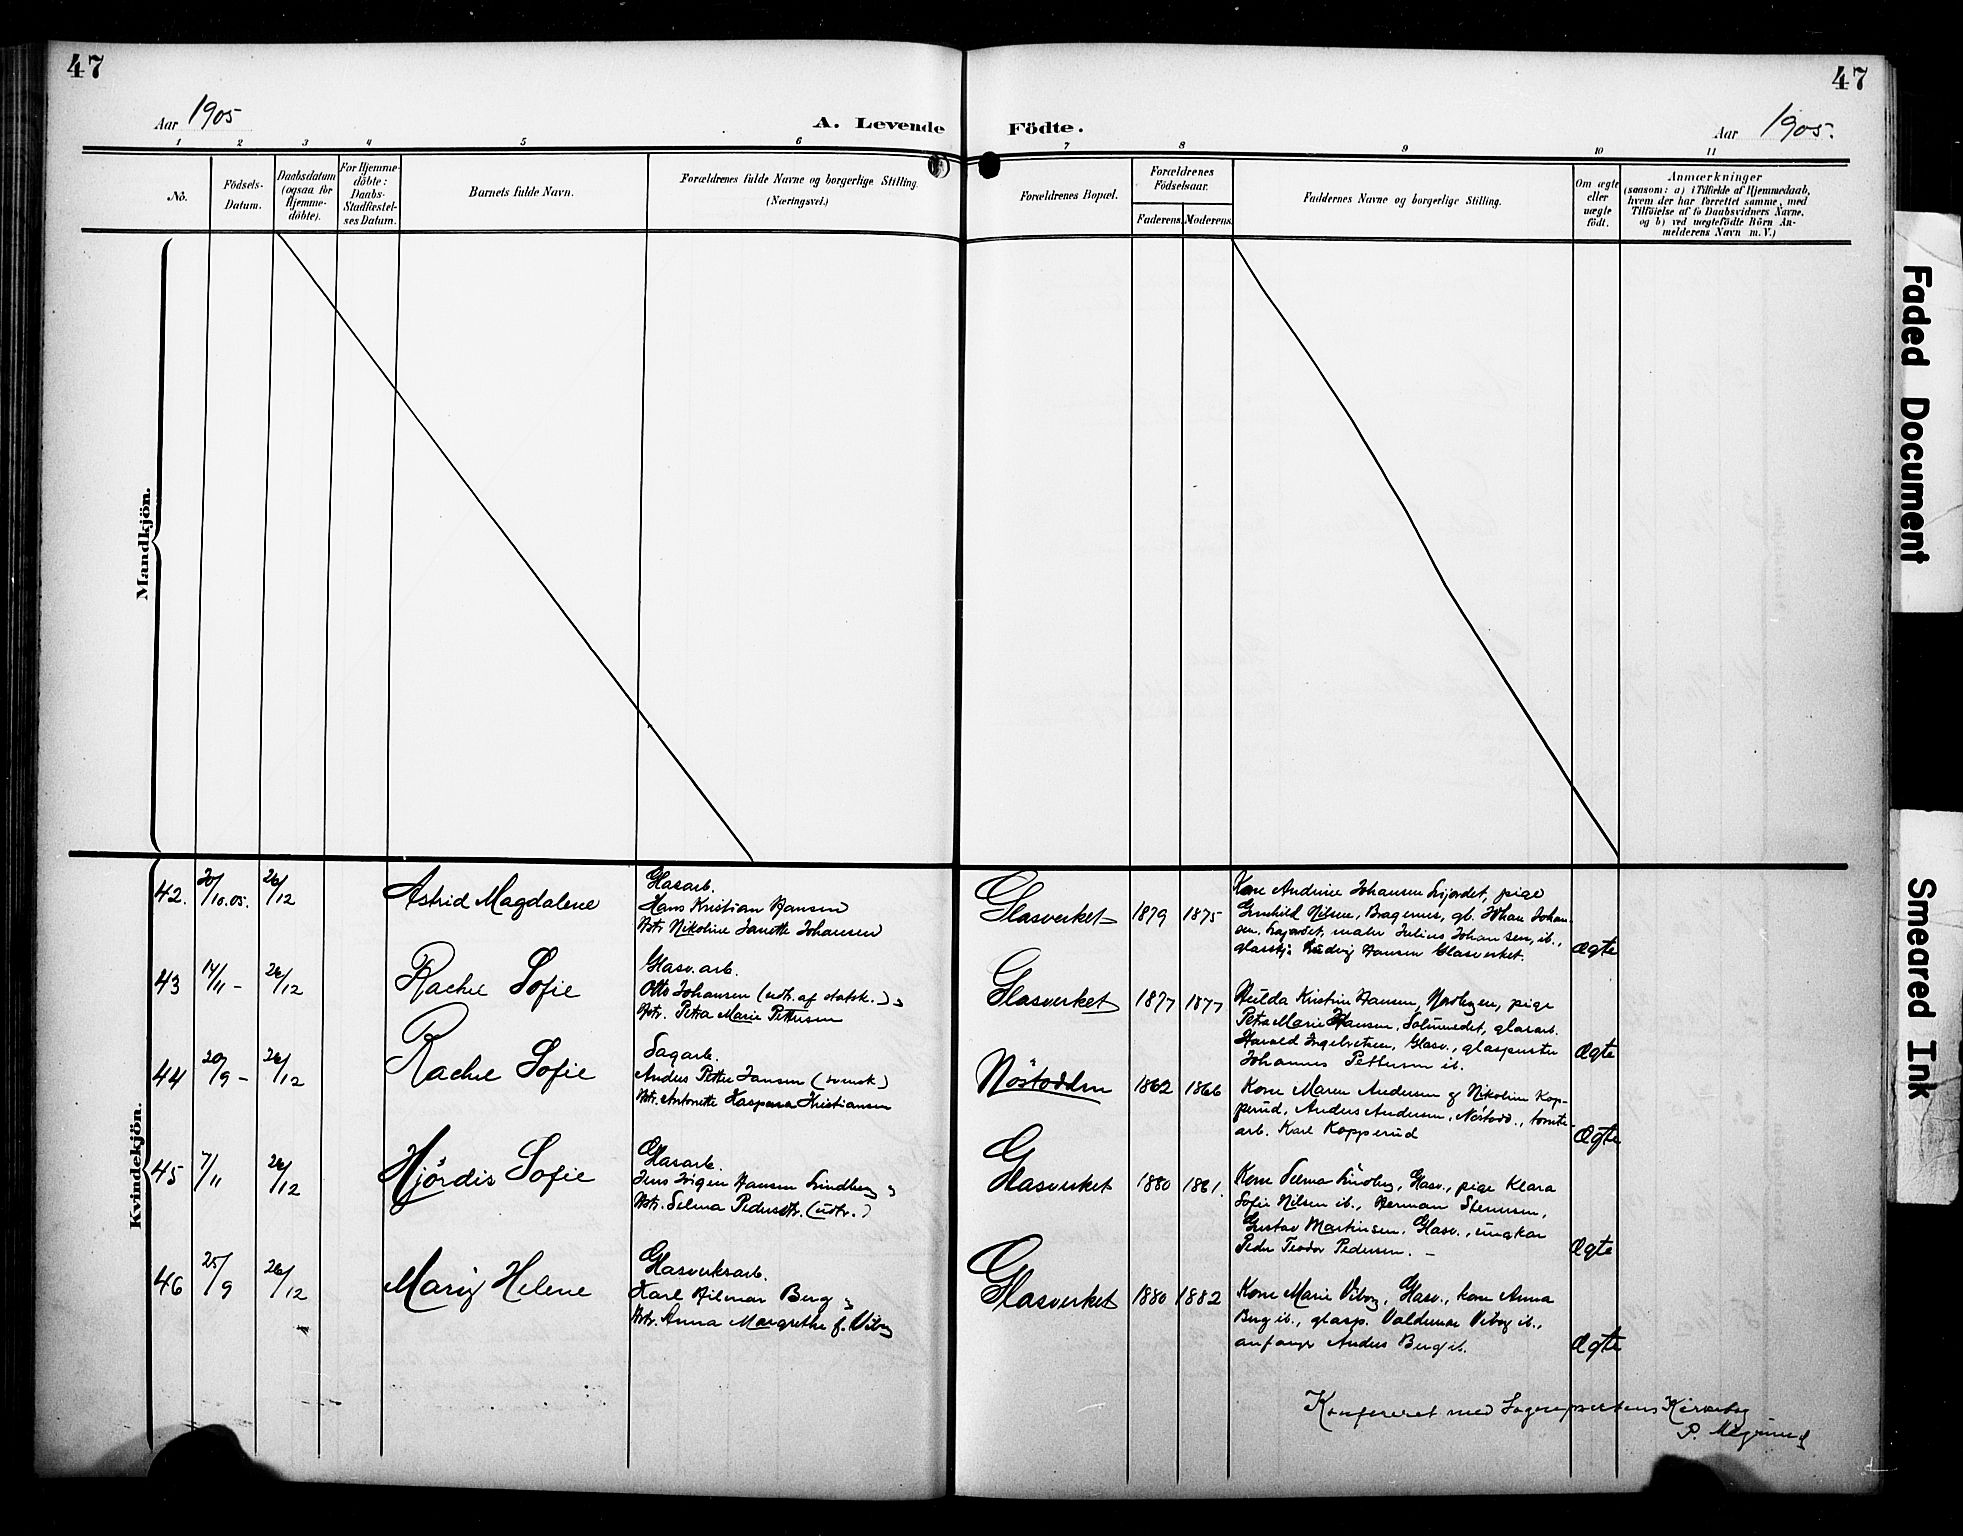 47
47
Aar 1905
A. Levende
Födte.
Aar 1905.
1 2 3 4 5 6 7 8 9 10 11
No.
Födsels-
Datum.
Daabsdatum
(ogsaa for
Hjemme-
döbte).
For Hjemme-
döbte:
Daabs-
Stadfæstel-
ses Datum.
Barnets fulde Navn.
Forældrenes fulde Navne og borgerlige Stilling.
(Næringsvei.)
Forældrenes Bopæl.
Forældrenes
Födselsaar.
Faderens. Moderens.
Faddernes Navne og borgerlige Stilling.
Om ægte
eller
uægte
födt.
Anmærkninger
(saasom: a) i Tilfælde af Hjemmedaab,
hvem der har forrettet samme, med
Tilföielse af to Daabsvidners Navne,
og b) ved uægtefödte Börn An-
melderens Navn m. V.)
Mandkjön.
Kvindekjön.
42. 20/10.05. 26/12 Astrid Magdalene
Glasarb.
Hans Kristian Hansen
Hstr. Nikoline Janette Johansen
Glasverket 1879 1875
Kone Andrine Johansen Lijordet, pige
Gunhild Nilsen, Bragernes, gb. Johan Johan-
sen, Lijordet, maler Julius Johansen, ib.,
glasskj. Ludvig Hansen Glasverket.
Ægte
43 14/11 - 26/12 Rachel Sofie
Glasv. arb.
Otto Johansen (udtr. af statsk.)
Hstr. Petra Marie Pettersen
Glasverket 1877 1877
Hulda Kristine Hansen, pige
Petra Marie Hansen, glasarb.
Harald Ingebretsen, Glasv., glaspuster
Johannes Pettersen ib.
Ægte
44 20/9 - 26/12 Rachel Sofie
Sagarb.
Anders Petter Jansen (svensk)
Hstr. Antonette Kaspara Kristiansen
Nöstodden 1862 1866
Kone Maren Andersen & Nikoline Kop-
perud, Anders Andersen, Nöstodd., tomte-
arb. Karl Kopperud
Ægte
45 7/11 26/12 Hjördis Sofie
Glasarb.
Jens Jörgen Hansen Lindberg &
Hstr. Selma Pedersdtr. (udtr.)
Glasverket 1880 1861.
Kone Selma Lindberg, Glasv., pige Klara
Sofie Nilsen ib., Herman Stensen,
Gustav Martinsen, Glasv., ungkar
Peder Teodor Pedersen. -
Ægte
46 25/9 26/12 Mary Helene
Glasverksarb.
Karl Hilmar Berg &
Hstr. Anna Margrethe f. Viborg
Glasverket 1880 1882
Kone Marie Viborg, Glasv., kone Anna
Berg ib., glasp. Valdemar Viborg ib.,
Anders Berg ib.
Ægte
Konfereret med Sogneprestens Kirkebog
P.
Faded Document
Smeared Ink